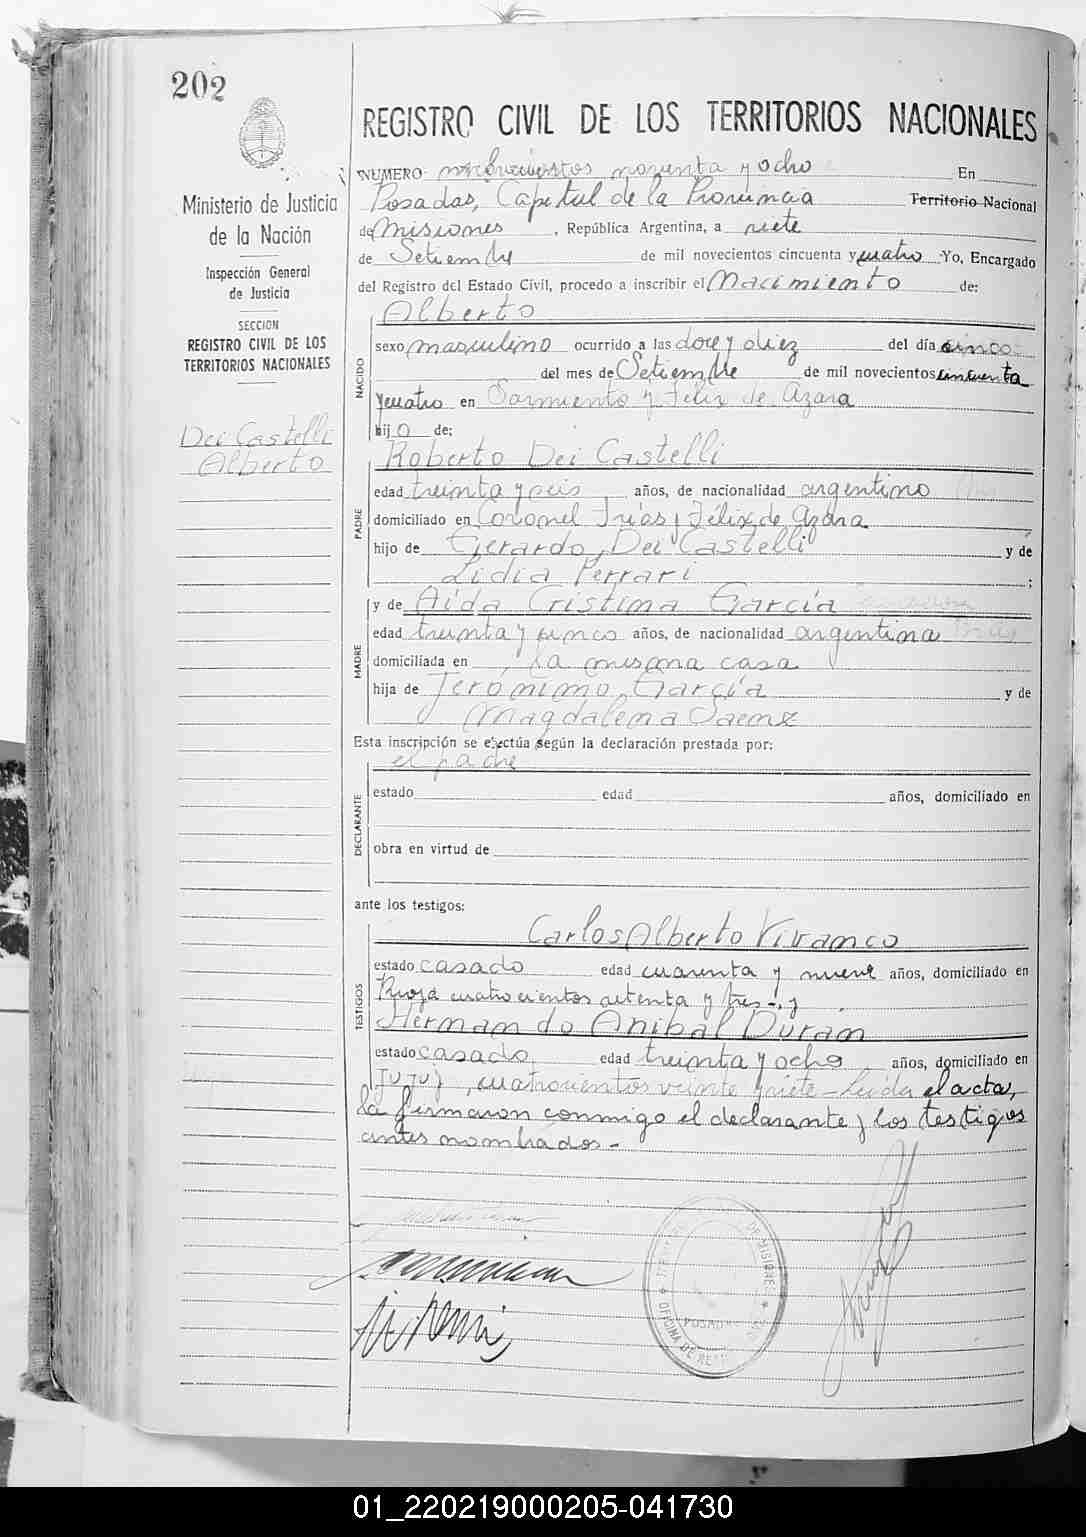 202
REGISTRO CIVIL DE LOS TERRITORIOS NACIONALES
Ministerio de Justicia
de la Nación
Inspección General
de Justicia
SECCION
REGISTRO CIVIL DE LOS
TERRITORIOS NACIONALES
Dei Castelli
Alberto
NUMERO noventa y ocho En
Posadas, Capital de la Provincia Territorio Nacional
de Misiones, República Argentina, a siete
de Setiembre de mil novecientos cincuenta y cuatro Yo, Encargado
del Registro del Estado Civil, procedo a inscribir el Nacimiento de:
Alberto
NACIDO
sexo masculino ocurrido a las doce y diez del día cinco
del mes de Setiembre de mil novecientos cincuenta
y cuatro en Sarmiento y Félix de Azara
hijo de:
Roberto Dei Castelli
PADRE
edad treinta y seis años, de nacionalidad argentino
domiciliado en Coronel Frías y Félix de Azara
hijo de Gerardo Dei Castelli y de
Lidia Ferrari ;
y de Aída Cristina García
MADRE
edad treinta y cinco años, de nacionalidad argentina
domiciliada en , La misma casa
hija de Jerónimo García y de
Magdalena Saenz
Esta inscripción se efectúa según la declaración prestada por:
el padre
DECLARANTE
estado edad años, domiciliado en
obra en virtud de
ante los testigos:
Carlos Alberto Vivanco
TESTIGOS
estado casado edad cuarenta y nueve años, domiciliado en
Rioja cuatrocientos setenta y tres-. y
Hernando Anibal Durán
estado casado edad treinta y ocho años, domiciliado en
Jujuy, cuatrocientos veinte y siete - Leída el acta,
la firmaron conmigo el declarante y los testigos
antes nombrados -
DE MISIONES
POSADAS
OFICINA DE
01_220219000205-041730